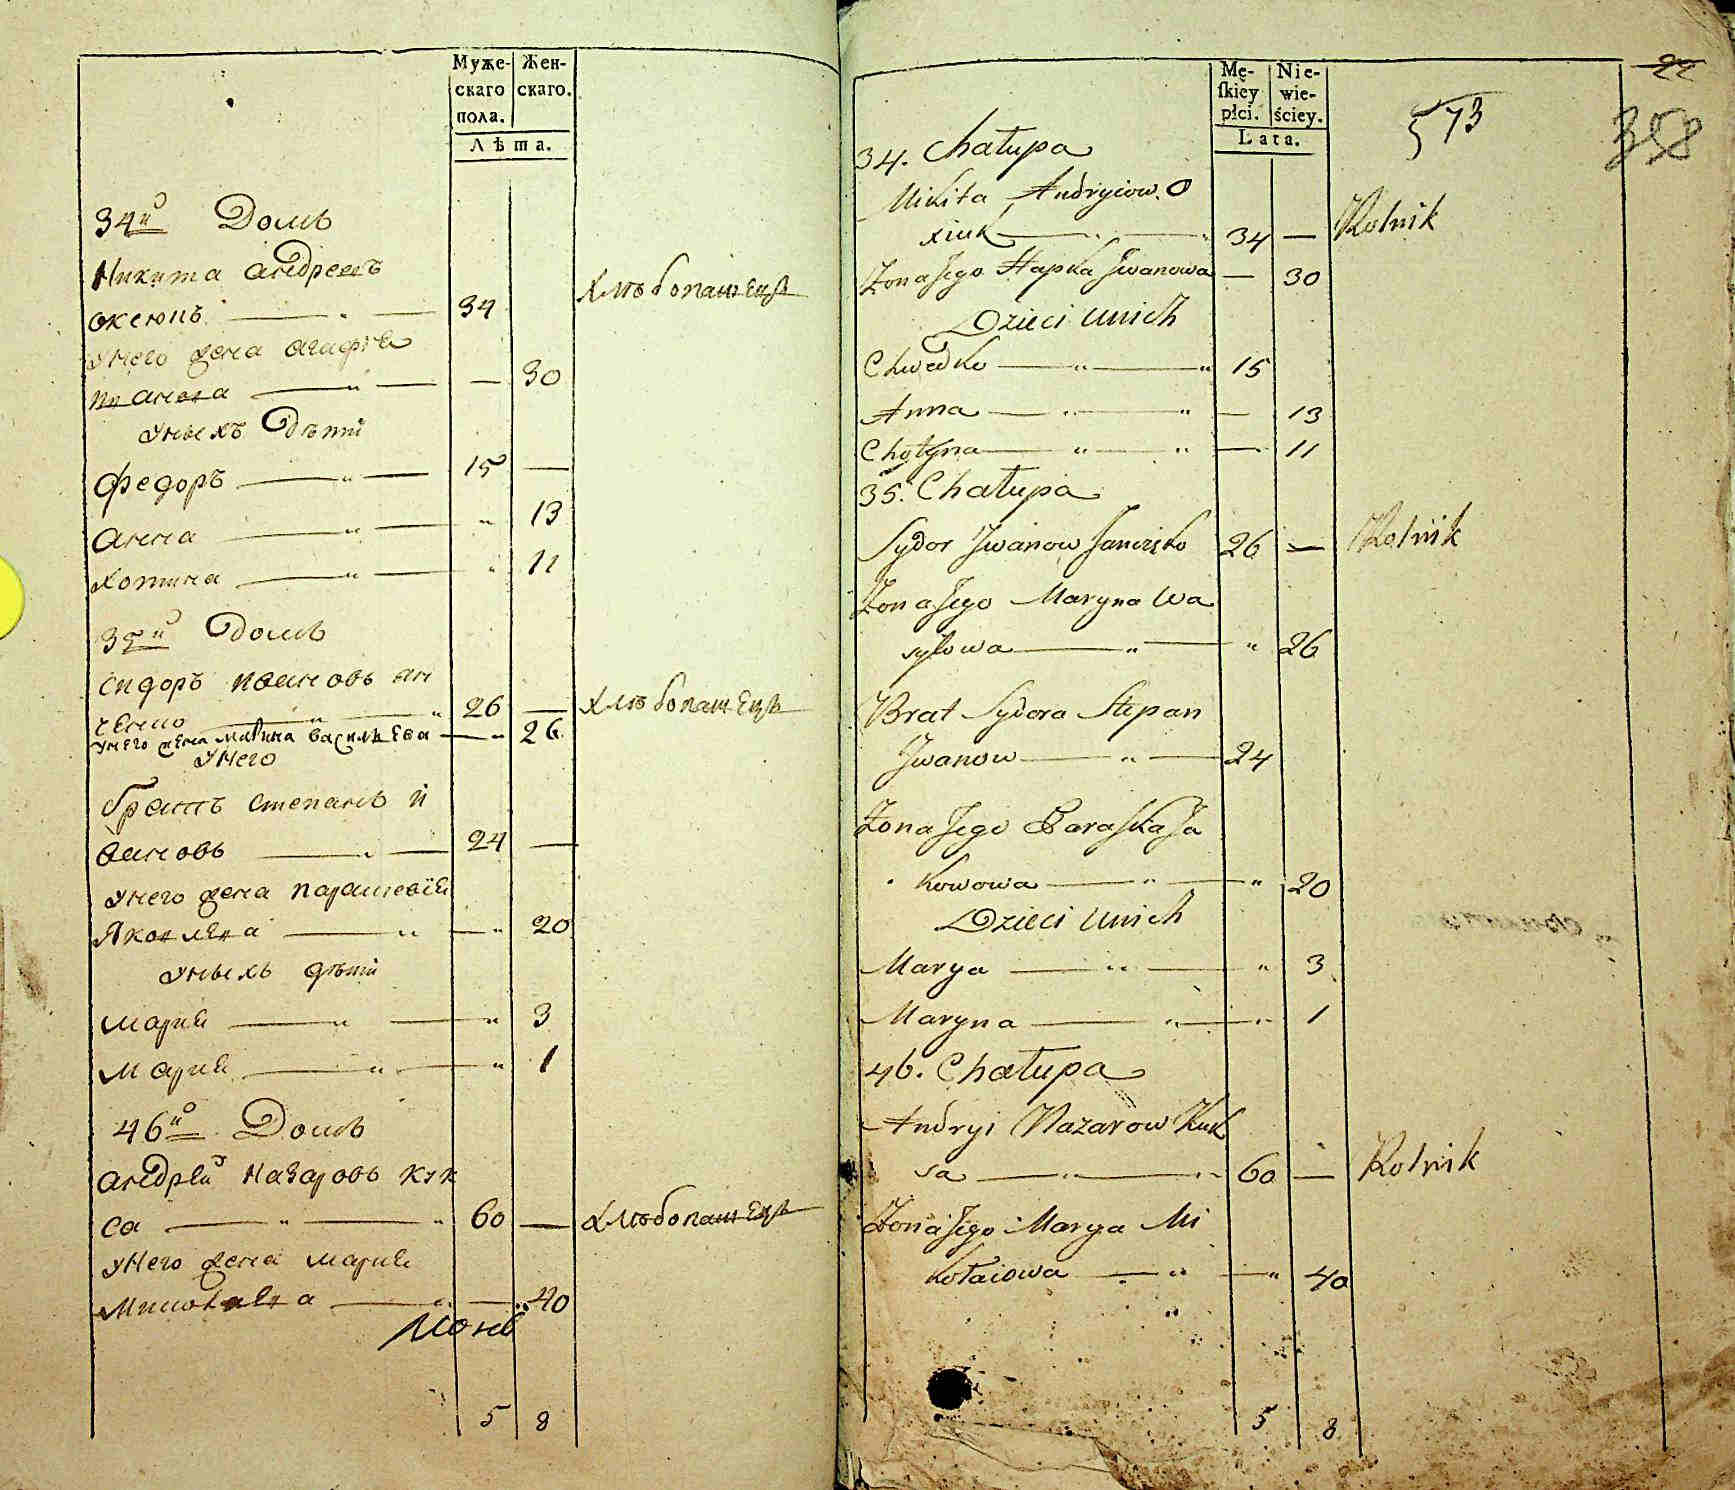 Муже-
скаго
пола.
Жен-
скаго.
Лѣта.
34й Домъ
Никита Андреевъ
Оксюкъ — " — 34
хлѣбопашецъ
у него жена Агафiя
Иванова — " — — 30
у ныхъ дѣти
Федоръ — " — 15 —
Анна — " — " 13
Хотина — " — " 11
35й Домъ
Сидоръ Ивановъ Ян
ченко — " — " 26 — хлѣбопашецъ
у него жена Марина Василѣева — " 26
у него
братъ Степанъ И
вановъ — " — 24 —
у него жена Парашевiя
Яковлева — " — " 20
у ныхъ дѣти
Мария — " — " 3
Мария — " — " 1
46й Домъ
Андрей Назаровъ Кук
са — " — " 60 — хлѣбопашецъ
у него жена Мария
— " — " 40
5 8
Mę-
ſkiey
płci.
Nie-
wie-
ściey.
Lata.
22
573
358
34. Chałupa
Mikita Andryiow. O
xiuk — " — " 34 — Rolnik
Żona Jego Hapka Jwanowa — 30
Dzieci u nich
Chwedko — " — " 15
Anna — " — " — 13
Chotyna — " — " — 11
35. Chałupa
Sydor Jwanow 26 — Rolnik
Żona Jego Maryna Wa
sylowa — " — " 26
Brat Sydora Stepan
Jwanow — " — 24
Żona Jego Paraska Ja
kowowa — " — " 20
Dzieci u nich
Marya — " — " 3
Maryna — " — " 1
46. Chałupa
Andryi Nazarow Kuk
sa — " — " 60 — Rolnik
Żona Jego Marya Mi
kołaiowa — " — " 40
5 8